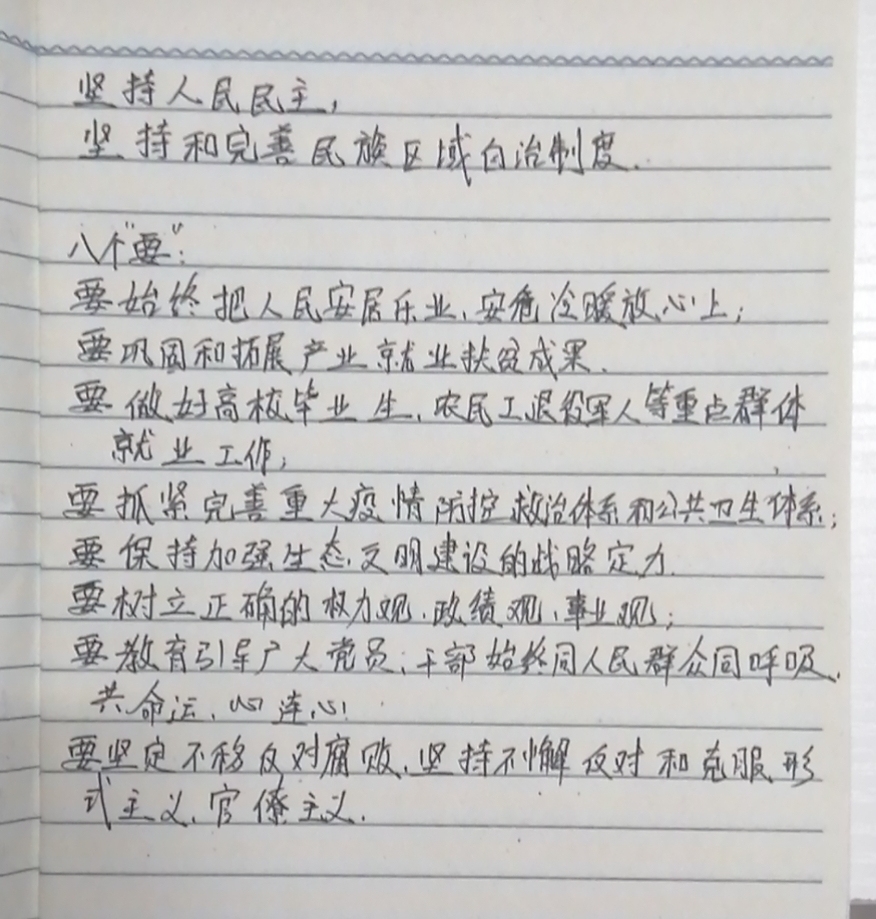 坚持人民民主,
坚持和完善民族区域自治制度.
八个"要":
要始终把人民安居乐业、安危冷暖放心上;
要巩固和拓展产业就业扶贫成果.
要做好高校毕业生、农民工退役军人等重点群体
就业工作;
要抓紧完善重大疫情防控救治体系和公共卫生体系;
要保持加强生态文明建设的战略定力.
要树立正确的权力观、政绩观、事业观;
要教育引导广大党员、干部始终同人民群众同呼吸、
共命运、心连心!
要坚定不移反对腐败、坚持不懈反对和克服形
式主义、官僚主义.